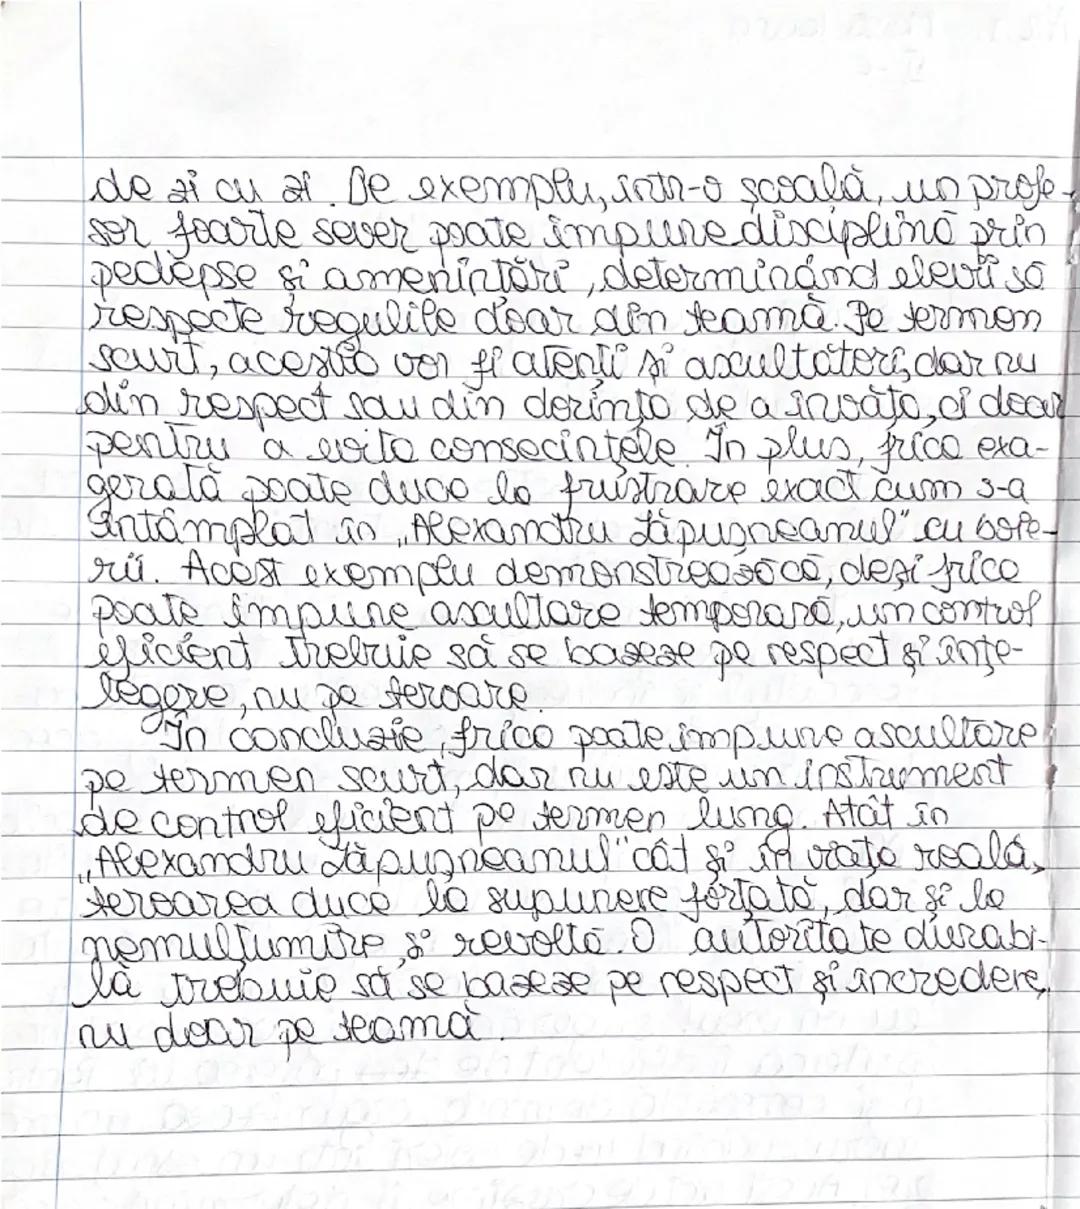 de zi cu zi. De exemplu, într-o școală, un profe-
sor foarte sever poate impune disciplină prin
pedepse și amenințări, determinând elevii să
respecte regulile doar din teamă. Pe termen
scurt, aceștia vor fi atenți și ascultători, dar nu
din respect sau din dorința de a învăța, ci doar
pentru a evita consecințele. În plus, frica exa-
gerată poate duce la frustrare exact cum s-a
întâmplat în „Alexandru Lăpușneanul" cu boie-
rii. Acest exemplu demonstrează că, deși frica
poate impune ascultare temporară, un control
eficient trebuie să se bazeze pe respect și înțe-
legere, nu pe teroare.
În concluzie, frica poate impune ascultare
pe termen scurt, dar nu este un instrument
de control eficient pe termen lung. Atât în
„Alexandru Lăpușneanul" cât și în viața reală,
teroarea duce la supunere forțată, dar și la
nemulțumire și revoltă. O autoritate durabi-
lă trebuie să se bazeze pe respect și încredere,
nu doar pe teamă.